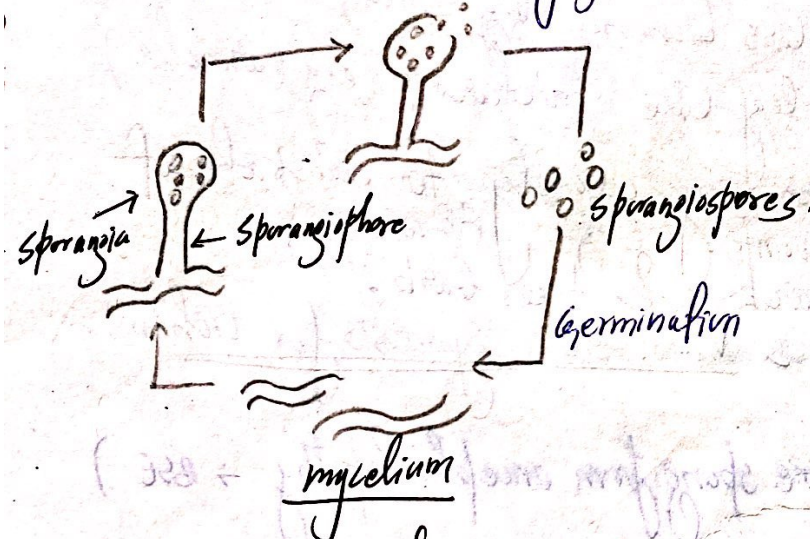 sporangia
sporangiophore
sporangiospores
Germination
mycelium